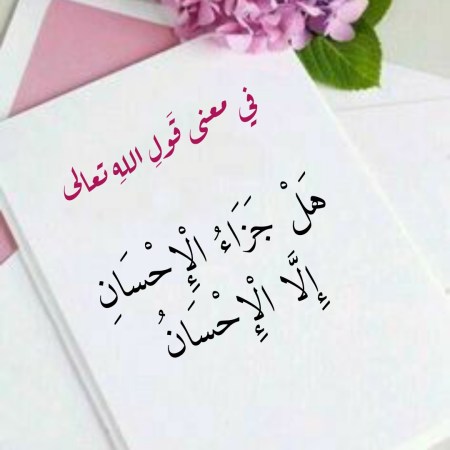 في معنى قَولِ اللهِ تعالى
هَلْ جَزَاءُ الْإِحْسَانِ
إِلَّا الْإِحْسَانُ